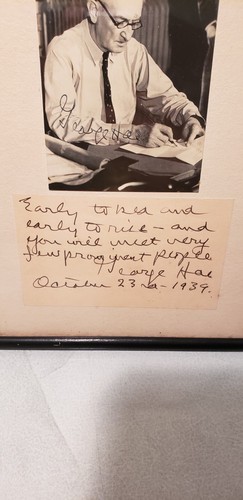 George Ade
Early to bed and
early to rise - and
you will meet very
few prominent people
George Ade
October 23rd - 1939.